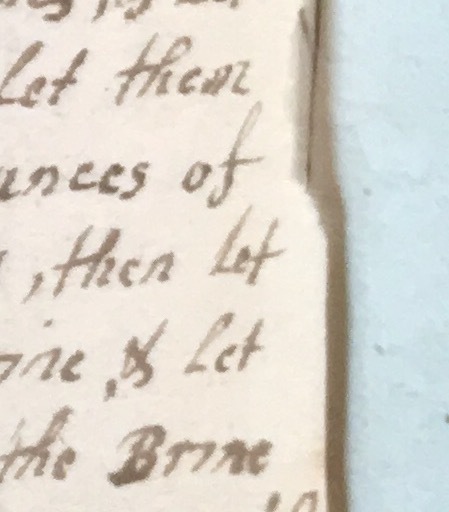 let them
unces of
, then let
ine, & let
the Brine